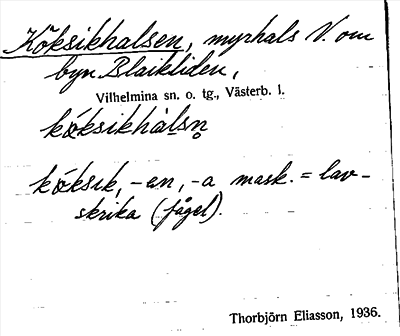 Köksikhalsen, myrhals V. om
byn Blaikliden,
Vilhelmina sn. o. tg., Västerb. l.
kǿksikhàlsn̥
kǿksik, -en, -a mask. = lav-
skrika (fågel).
Thorbjörn Eliasson, 1936.